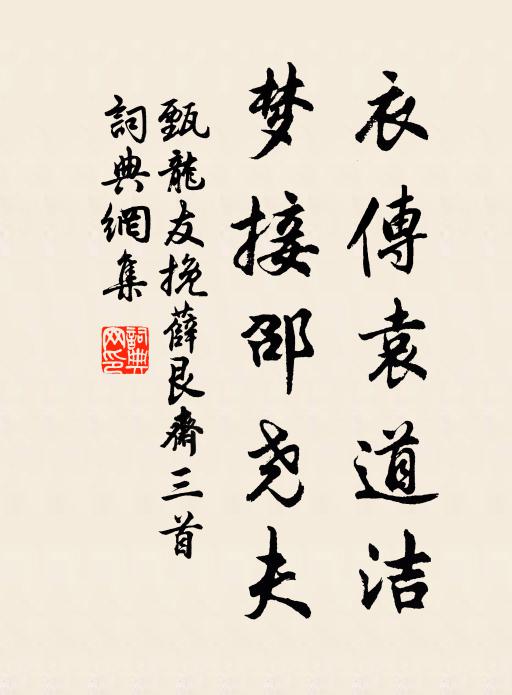 衣傳袁道洁
梦接邵尧夫
甄龍友挽薛艮齋三首
詞典網集
詞典网印